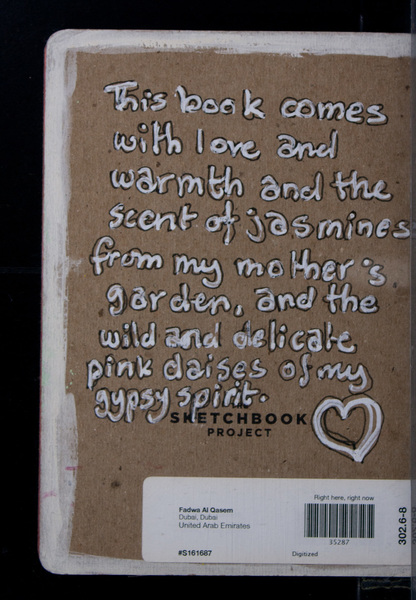 This book comes
with love and
warmth and the
scent of jasmines
from my mother's
garden, and the
wild and delicate
pink daises of my
gypsy spirit.
SKETCHBOOK
PROJECT
Right here, right now
Fadwa Al Qasem
Dubai, Dubai
United Arab Emirates
35287
#S161687
Digitized
302.6-8